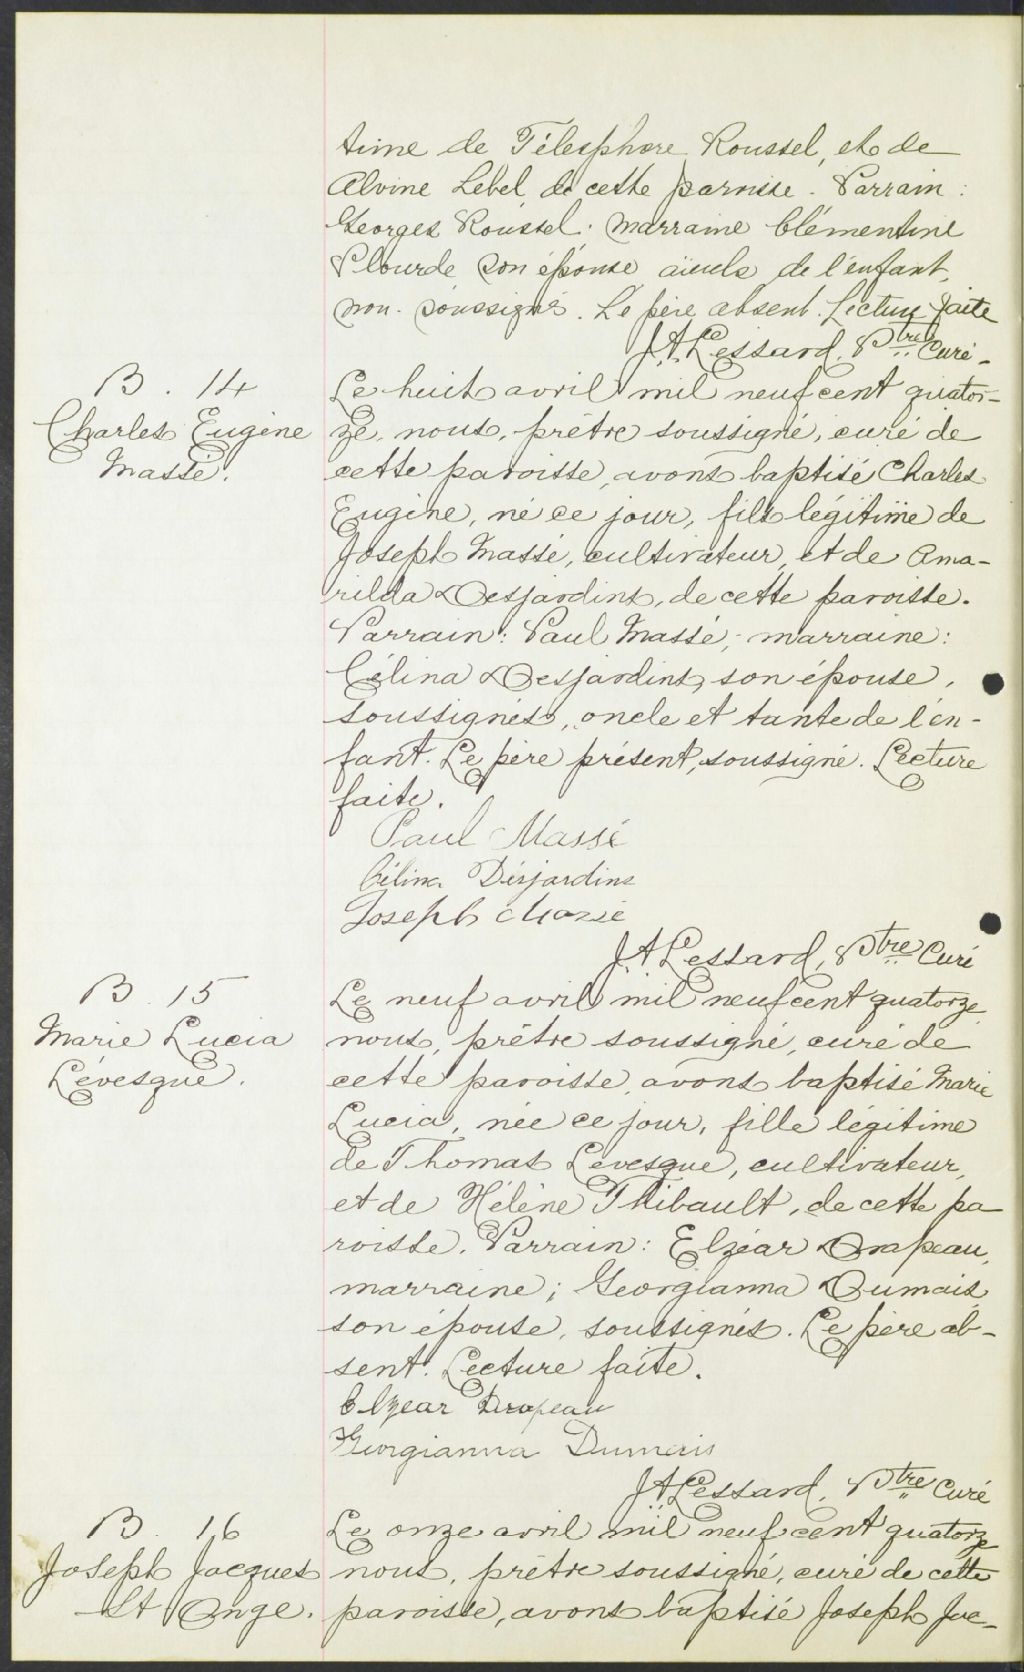 time de Télesphore Roussel, et de
Alvine Lebel de cette paroisse. Parrain:
Georges Roussel: Marraine Clémentine
Plourde son épouse aïeuls de l'enfant,
non-soussignés. Le père absent. Lecture faite
J.A. Lessard, Ptre Curé.
B. 14
Charles Eugène
Massé.
Le huit avril mil neuf cent quator-
ze, nous, prêtre soussigné, curé de
cette paroisse, avons baptisé Charles
Eugène, né ce jour, fils légitime de
Joseph Massé, cultivateur, et de Ama-
rilda Desjardins, de cette paroisse.
Parrain: Paul Massé; marraine:
Célina Desjardins, son épouse,
soussignés, oncle et tante de l'en-
fant. Le père présent, soussigné. Lecture
faite.
Paul Massé
Célina Désjardins
Joseph Massé
J.A Lessard, Ptre Curé
B. 15
Marie Lucia
Lévesque.
Le neuf avril mil neuf cent quatorze,
nous, prêtre soussigné, curé de
cette paroisse, avons baptisé Marie
Lucia, née ce jour, fille légitime
de Thomas Levesque, cultivateur,
et de Hélène Thibault, de cette pa
roisse. Parrain: Elzéar Drapeau,
marraine; Georgianna Dumais,
son épouse, soussignés. Le père ab-
sent. Lecture faite.
Elzear Drapeau
Georgianna Dumais
J.A Lessard, Ptre Curé
B. 16
Joseph Jacques
St Onge.
Le onze avril mil neuf cent quatorze
nous, prêtre soussigné, curé de cette
paroisse, avons baptisé Joseph Jac-